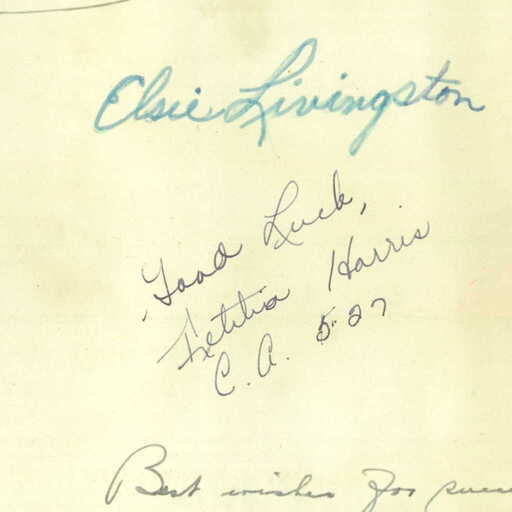 Elsie Livingston
Good Luck,
Letitia Harris
C. A. 5-27
Best wishes for